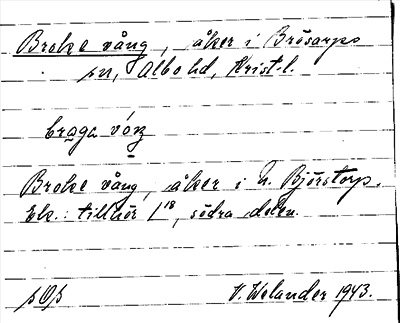 Broke vång, åker i Brösarps
sn, Albo hd, Krist.l.
braga vóŋ
Broke vång, åker i n. Björstorp.
Ek.: tillhör 1¹⁸, södra delen.
V. Welander 1943.